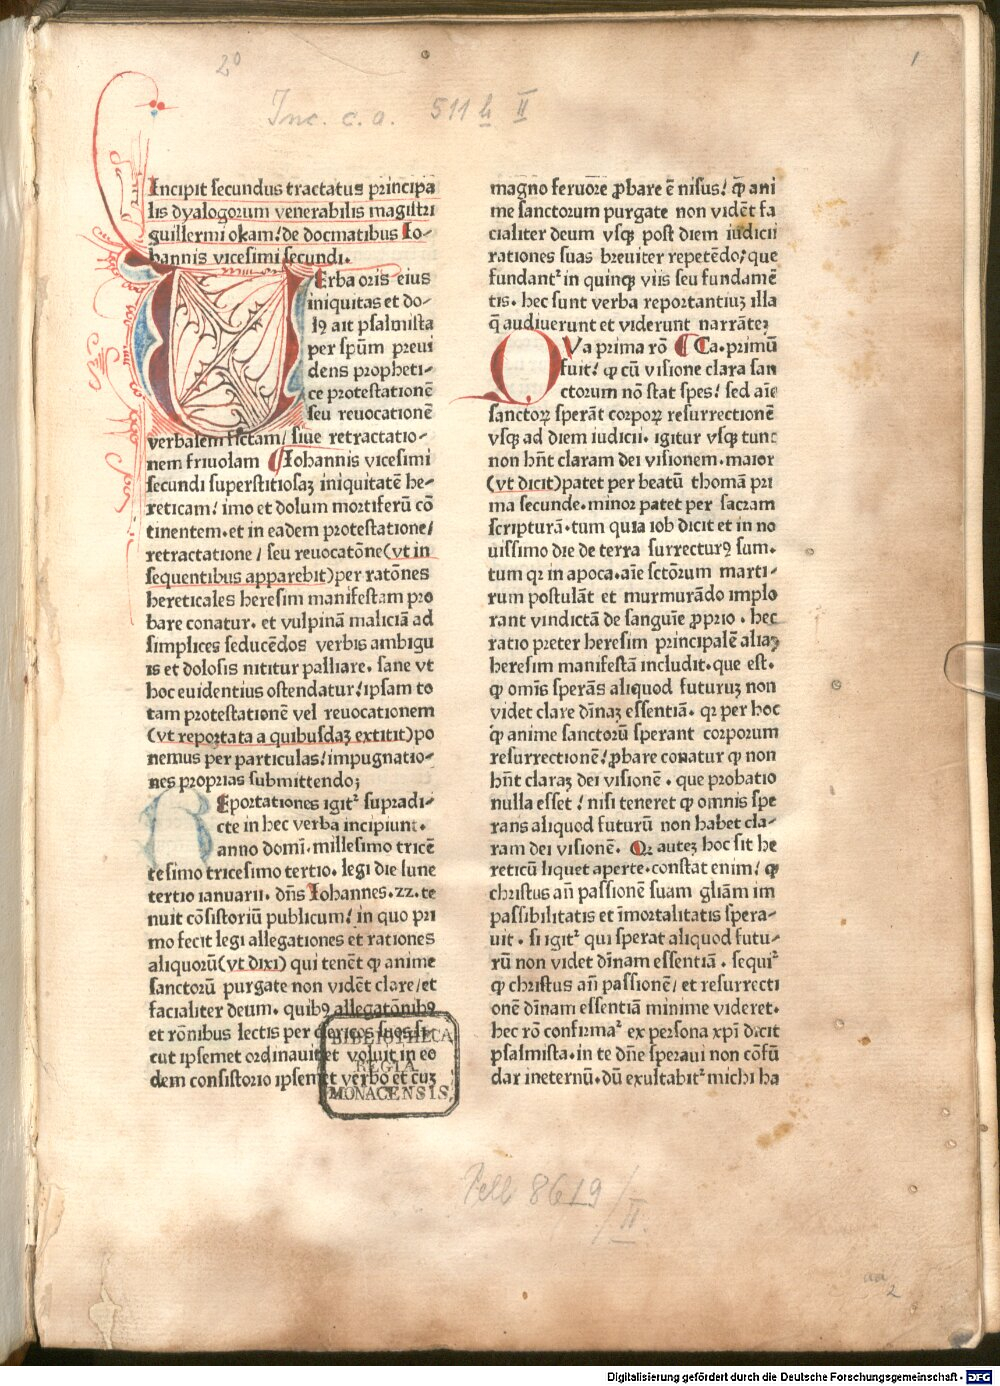 2°
1
Inc. c. a. 511 h II
Incipit secundus tractatus principa
lis dyalogorum venerabilis magistri
guillermi okam/ de docmatibus Io-
hannis vicesimi secundi.
VErba oris eius
iniquitas et do-
lꝰ ait psalmista
per spūm preui
dens propheti-
ce protestationē
seu reuocationē
verbalem fictam/ siue retractatio-
nem friuolam Iohannis vicesimi
secundi superstitiosaꝫ iniquitatē he-
reticam/ imo et dolum mortiferū cō
tinentem. et in eadem protestatione/
retractatione / seu reuocatōne (vt in
sequentibus apparebit) per ratōnes
hereticales heresim manifestam pro
bare conatur. et vulpinā maliciā ad
simplices seducēdos verbis ambigu
is et dolosis nititur palliare. sane vt
hoc euidentius ostendatur/ ipsam to
tam protestationē vel reuocationem
(vt reportata a quibusdaꝫ extitit) po
nemus per particulas/ impugnatio-
nes proprias submittendo;
REportationes igit᷑ supradi-
cte in hec verba incipiunt.
anno domī. millesimo tricē
tesimo tricesimo tertio. legi die lune
tertio ianuarii. dn̄s Iohannes .22. te
nuit cōsistoriū publicum/ in quo pri
mo fecit legi allegationes et rationes
aliquorū (vt dixi) qui tenēt ꝙ anime
sanctorū purgate non vidēt clare/ et
facialiter deum. quibꝰ allegatōnibꝰ
et rōnibus lectis per clericos suos si
cut ipsemet ordinauit et voluit in eo
dem consistorio ipsemet verbo et cuꝫ
magno feruore ꝓbare ē nisus/ ꝙ ani
me sanctorum purgate non vidēt fa
cialiter deum vsqꝫ post diem iudicii
rationes suas breuiter repetēdo; que
fundant᷑ in quinqꝫ viis seu fundamē
tis. hec sunt verba reportantiuꝫ illa
q̄ audiuerunt et viderunt narrāte;
QVa prima rō Ca. primū
fuit/ ꝙ cū visione clara san
ctorum nō stat spes/ sed aīe
sanctoꝝ sperāt corpoꝝ resurrectionē
vsqꝫ ad diem iudicii. igitur vsqꝫ tunc
non hn̄t claram dei visionem. maior
(vt dicit) patet per beatū thomā pri
ma secunde. minor patet per sacram
scripturā. tum quia iob dicit et in no
uissimo die de terra surrecturꝰ sum.
tum qꝛ in apoca. aīe sctōrum marti-
rum postulāt et murmurādo implo
rant vindictā de sanguīe ꝓprio. hec
ratio preter heresim principalē aliaꝫ
heresim manifestā includit. que est.
ꝙ omīs sperās aliquod futuruꝫ non
videt clare dīnaꝫ essentiā. qꝛ per hoc
ꝙ anime sanctorū sperant corporum
resurrectionē/ ꝓbare conatur ꝙ non
hn̄t claraꝫ dei visionē. que probatio
nulla esset / nisi teneret ꝙ omnis spe
rans aliquod futurū non habet cla-
ram dei visionē. Qꝛ auteꝫ hoc sit he
reticū liquet aperte. constat enim/ ꝙ
christus an̄ passionē suam gliām im
passibilitatis et īmortalitatis spera-
uit. si igit᷑ qui sperat aliquod futu-
rū non videt dīnam essentiā. sequi᷑
ꝙ christus an̄ passionē/ et resurrecti
onē dīnam essentiā minime videret.
hec rō confirma᷑ ex persona xp̄i dicit
psalmista. in te dn̄e speraui non cōfū
dar ineternū. dū exultabit᷑ michi ha
BIBLIOTHECA
REGIA
MONACENSIS.
Pell 8619 / II.
aa 2
Digitalisierung gefördert durch die Deutsche Forschungsgemeinschaft - DFG